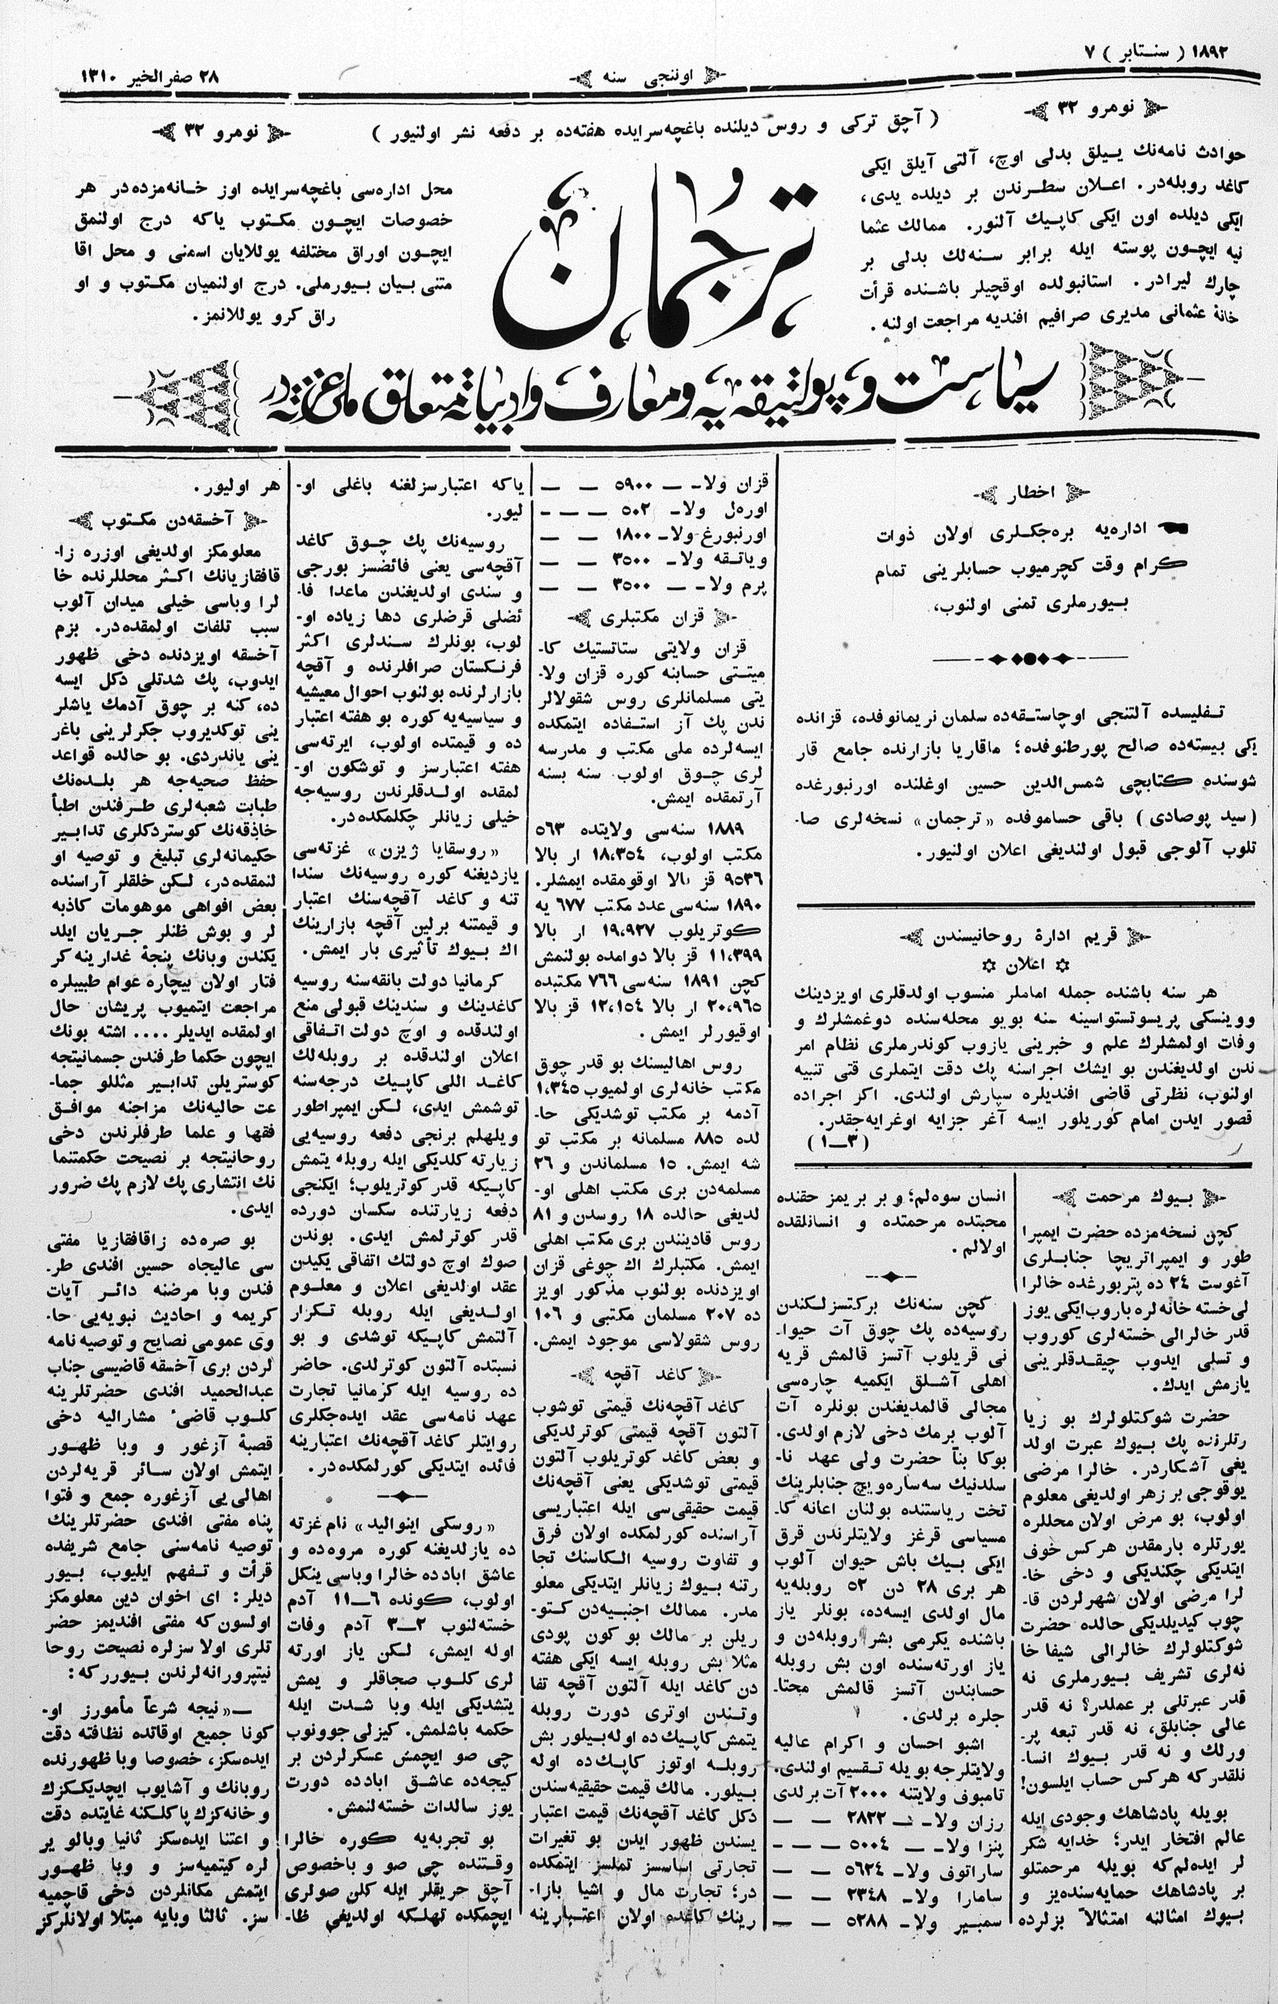 ١٨٩٢ ( سنتابر ) ٧
اوننجی سنه
٢٨ صفر الخیر ١٣١٠
نومرو ٣٢
( آچق ترکی و روس دیلنده باغچه‌سرایده هفته‌ده بر دفعه نشر اولنیور )
نومرو ٣٢
حوادث نامه‌نك ییلق بدلی اوچ، آلتی آیلق ایکی
کاغد روبله‌در. اعلان سطرندن بر دیلده یدی،
ایکی دیلده اون ایکی کاپیك آلنور. ممالك عثما
نیه ایچون پوسته ایله برابر سنه‌لك بدلی بر
چارك لیرادر. استانبولده اوقچیلر باشنده قرأت
خانهٔ عثمانی مدیری صرافیم افندیه مراجعت اولنه.
ترجمان
محل اداره‌سی باغچه‌سرایده اوز خانه‌مزده‌در هر
خصوصات ایچون مکتوب یاکه درج اولنمق
ایچون اوراق مختلفه یوللایان اسمنی و محل اقا
متنی بیان بیورملی. درج اولنمیان مکتوب و او
راق کرو یوللانمز.
سیاست و پولتیقه‌یه و معارف و ادبیاته متعلق ملی غزته‌در
اخطار
اداره‌یه بره‌جکلری اولان ذوات
کرام وقت کچرمیوب حسابلرینی تمام
بیورملری تمنی اولنوب،
تفلیسده آلتنجی اوچاستقه‌ده سلمان نریمانوفده، قزانده
یکی بیسته‌ده صالح پورطنوفده؛ ماقاریا بازارنده جامع قار
شوسنده کتابچی شمس‌الدین حسین اوغلنده اورنبورغده
(سید پوصادی) باقی حساموفده «ترجمان» نسخه‌لری صا-
تلوب آلوجی قبول اولندیغی اعلان اولنیور.
قریم ادارهٔ روحانیسندن
اعلان
هر سنه باشنده جمله اماملر منسوب اولدقلری اویزدینك
ووینسکی پریسوتستواسینه سنه بویو محله‌سنده دوغمشلرك و
وفات اولمشلرك علم و خبرینی یازوب کوندرملری نظام امر
ندن اولدیغندن بو ایشك اجراسنه پك دقت ایتملری قتی تنبیه
اولنوب، نظرتی قاضی افندیلره سپارش اولندی. اکر اجراده
قصور ایدن امام کوریلور ایسه آغر جزایه اوغرایه‌جقدر.
(٣—١)
بیوك مرحمت
کچن نسخه‌مزده حضرت ایمپرا
طور و ایمپراتریچا جنابلری
آغوست ٢٤ ده پتربورغده خالرا
لی خسته خانه‌لره باروب ایکی یوز
قدر خالرالی خسته‌لری کوروب
و تسلی ایدوب چیقدقلرینی
یازمش ایدك.
حضرت شوکتلولرك بو زیا
رتلرنده پك بیوك عبرت اولد
یغی آشکاردر. خالرا مرضی
یوقوجی بر زهر اولدیغی معلوم
اولوب، بو مرض اولان محللره
یورتلره بارمقدن هرکس خوف
ایتدیکی چکندیکی و دخی خا-
لرا مرضی اولان شهرلردن قا-
چوب کیدیلدیکی حالده حضرت
شوکتلولرك خالرالی شیفا خا
نه‌لری تشریف بیورملری نه
قدر عبرتلی بر عملدر؟ نه قدر
عالی جنابلق، نه قدر تبعه پر-
ورلك و نه قدر بیوك انسا-
نلقدر که هرکس حساب ایلسون!
بویله پادشاهك وجودی ایله
عالم افتخار ایدر؛ خدایه شکر
لر ایده‌لم که بویله مرحمتلو
بر پادشاهك حمایه‌سنده‌یز و
بیوك امثالنه امتثالاً بزلرده
انسان سوه‌لم؛ و بر بریمز حقنده
محبتده مرحمتده و انسانلقده
اولالم.
کچن سنه‌نك برکتسزلکندن
روسیه‌ده پك چوق آت حیوا-
نی قریلوب آتسز قالمش قریه
اهلی آشلق ایکمیه چاره‌سی
مجالی قالمدیغندن بونلره آت
آلوب برمك دخی لازم اولدی.
بوکا بناً حضرت ولی عهد نا-
سلدنیك سه‌ساره‌ویچ جنابلرینك
تخت ریاستنده بولنان اعانه کا-
میسیاسی قرغز ولایتلرندن قرق
ایکی بیك باش حیوان آلوب
هر بری ٢٨ دن ٥٢ روبله‌یه
مال اولدی ایسه‌ده، بونلر یاز
باشنده یکرمی بشر روبله‌دن و
یاز اورته‌سنده اون بش روبله
حسابندن آتسز قالمش محتا-
جلره برلدی.
اشبو احسان و اکرام عالیه
ولایتلرجه بویله تقسیم اولندی.
تامبوف ولایتنه ٢٠٠٠ آت برلدی
رزان ولا- ٢٨٢٢ — —
پنزا ولا- ٥٠٠٤ — —
ساراتوف ولا- ٥٦٢٤ — —
سامارا ولا- ٢٣٤٨ — —
سمبیر ولا- ٥٢٨٨ — —
قزان ولا- ٥٩٠٠ — —
اوره‌ل ولا- ٥٠٢ — —
اورنبورغ ولا- ١٨٠٠ — —
ویاتقه ولا- ٣٥٠٠ — —
پرم ولا- ٣٥٠٠ — —
قزان مکتبلری
قزان ولایتی ستاتستیك کا-
میتتی حسابنه کوره قزان ولا-
یتی مسلمانلری روس شقولالر
ندن پك آز استفاده ایتمکده
ایسه‌لرده ملی مکتب و مدرسه
لری چوق اولوب سنه بسنه
آرتمقده ایمش.
١٨٨٩ سنه‌سی ولایتده ٥٦٣
مکتب اولوب، ١٨،٣٥٤ ار بالا
٩٥٣٦ قز بالا اوقومقده ایمشلر.
١٨٩٠ سنه‌سی عدد مکتب ٦٧٧ یه
کوتریلوب ١٩،٩٢٧ ار بالا
١١،٣٩٩ قز بالا دوامده بولنمش
کچن ١٨٩١ سنه‌سی ٧٦٦ مکتبده
٢٠،٩٦٥ ار بالا ١٢،١٥٤ قز بالا
اوقیورلر ایمش.
روس اهالیسنك بو قدر چوق
مکتب خانه‌لری اولمیوب ١،٣٤٥
آدمه بر مکتب توشدیکی حا-
لده ٨٨٥ مسلمانه بر مکتب تو
شه ایمش. ١٥ مسلماندن و ٢٦
مسلمه‌دن بری مکتب اهلی او-
لدیغی حالده ١٨ روسدن و ٨١
روس قادینندن بری مکتب اهلی
ایمش. مکتبلرك اك چوغی قزان
اویزدنده بولنوب مذکور اویز
ده ٢٠٧ مسلمان مکتبی و ١٠٦
روس شقولاسی موجود ایمش.
کاغد آقچه
کاغد آقچه‌نك قیمتی توشوب
آلتون آقچه قیمتی کوترلدیکی
و بعض کاغد کوتریلوب آلتون
قیمتی توشدیکی یعنی آقچه‌نك
قیمت حقیقی‌سی ایله اعتباریسی
آراسنده کورلمکده اولان فرق
و تفاوت روسیه الکاسنك تجا
رتنه بیوك زیانلر ایتدیکی معلو
مدر. ممالك اجنبیه‌دن کتو-
ریلن بر مالك بو کون پودی
مثلا بش روبله ایسه ایکی هفته
دن کاغد ایله آلتون آقچه تفا
وتندن اوتری دورت روبله
یتمش کاپیك‌ده اوله‌بیلور بش
روبله اوتوز کاپك‌ده اوله
بیلور. مالك قیمت حقیقیه‌سندن
دکل کاغد آقچه‌نك قیمت اعتبار
یسندن ظهور ایدن بو تغیرات
تجارتی اساسسز تملسز ایتمکده
در؛ تجارت مال و اشیا بازا-
رینك کاغده اولان اعتبارینه
یاکه اعتبارسزلغنه باغلی او-
لیور.
روسیه‌نك پك چوق کاغد
آقچه‌سی یعنی فائضسز بورجی
و سندی اولدیغندن ماعدا فا-
ئضلی قرضلری دها زیاده او-
لوب، بونلرك سندلری اکثر
فرنکستان صرافلرنده و آقچه
بازارلرنده بولنوب احوال معیشیه
و سیاسیه‌یه کوره بو هفته اعتبار
ده و قیمتده اولوب، ایرته‌سی
هفته اعتبارسز و توشکون او-
لمقده اولدقلرندن روسیه‌جه
خیلی زیانلر چکلمکده‌در.
«روسقایا ژیزن» غزته‌سی
یازدیغنه کوره روسیه‌نك سندا
تنه و کاغد آقچه‌سنك اعتبار
و قیمتنه برلین آقچه بازارینك
اك بیوك تأثیری بار ایمش.
کرمانیا دولت بانقه‌سنه روسیه
کاغدینك و سندینك قبولی منع
اولندقده و اوچ دولت اتفاقی
اعلان اولندقده بر روبله‌لك
کاغد اللی کاپیك درجه‌سنه
توشمش ایدی، لکن ایمپراطور
ویلهلم برنجی دفعه روسیه‌یی
زیارته کلدیکی ایله روبله یتمش
کاپیکه قدر کوتریلوب؛ ایکنجی
دفعه زیارتنده سکسان دورده
قدر کوترلمش ایدی. بوندن
صوك اوچ دولتك اتفاقی یکیدن
عقد اولدیغی اعلان و معلوم
اولدیغی ایله روبله تکرار
آلتمش کاپیکه توشدی و بو
نسبتده آلتون کوترلدی. حاضر
ده روسیه ایله کرمانیا تجارت
عهد نامه‌سی عقد ایده‌جکلری
روایتلر کاغد آقچه‌نك اعتبارینه
فائده ایتدیکی کورلمکده‌در.
«روسکی اینوالید» نام غزته
ده یازلدیغنه کوره مروه‌ده و
عاشق ابادده خالرا وباسی ینکل
اولوب، کونده ٦—١١ آدم
خسته‌لنوب ٢—٣ آدم وفات
اوله ایمش، لکن یاز اورته
لری کلوب صجاقلر و یمش
یتشدیکی ایله وبا شدت ایله
حکمه باشلمش. کیزلی جوونوب
چی صو ایچمش عسکرلردن بر
کیجه‌ده عاشق ابادده دورت
یوز سالدات خسته‌لنمش.
بو تجربه‌یه کوره خالرا
وقتنده چی صو و باخصوص
آچق حریقلر ایله کلن صولری
ایچمکده تهلکه اولدیغی ظا-
هر اولیور.
آخسقه‌دن مکتوب
معلومکز اولدیغی اوزره زا-
قافقازیانك اکثر محللرنده خا
لرا وباسی خیلی میدان آلوب
سبب تلفات اولمقده‌در. بزم
آخسقه اویزدنده دخی ظهور
ایدوب، پك شدتلی دکل ایسه
ده، کنه بر چوق آدمك یاشلر
ینی توکدیروب جکرلرینی باغر
ینی یاندردی. بو حالده قواعد
حفظ صحیه‌جه هر بلده‌نك
طبابت شعبه‌لری طرفندن اطبأ
خاذقه‌نك کوستردکلری تدابیر
حکیمانه‌لری تبلیغ و توصیه او
لنمقده‌در، لکن خلقلر آراسنده
بعض افواهی موهومات کاذبه
لر و بوش ظنلر جریان ایلد
یکندن وبانك پنجهٔ غدارینه کر
فتار اولان بیچاره عوام طبیبلره
مراجعت ایتمیوب پریشان حال
اولمقده ایدیلر .... اشته بونك
ایچون حکما طرفندن جسمانیتجه
کوستریلن تدابیر مثللو جما-
عت حالیه‌نك مزاجنه موافق
فقها و علما طرفلرندن دخی
روحانیتجه بر نصیحت حکمتنما
نك انتشاری پك لازم پك ضرور
ایدی.
بو صره‌ده زاقافقازیا مفتی
سی عالیجاه حسین افندی طر-
فندن وبا مرضنه دائر آیات
کریمه و احادیث نبویه‌یی حا-
وی عمومی نصایح و توصیه نامه
لردن بری آخسقه قاضیسی جناب
عبدالحمید افندی حضرتلرینه
کلوب قاضیء مشارالیه دخی
قصبهٔ آزغور و وبا ظهور
ایتمش اولان سائر قریه‌لردن
اهالی‌یی آزغوره جمع و فتوا
پناه مفتی افندی حضرتلرینك
توصیه نامه‌سنی جامع شریفده
قرأت و تفهم ایلیوب، بیور
دیلر: ای اخوان دین معلومکز
اولسون که مفتی افندیمز حضر
تلری اولا سزلره نصیحت روحا
نیتپرورانه‌لرندن بیوررکه:
—«نیجه شرعاً مأمورز او-
کونا جمیع اوقاتده نظافته دقت
ایده‌سکز، خصوصا وبا ظهورنده
روبانك و آشایوب ایچدیککزك
و خانه‌کزك پاکلکنه غایتده دقت
و اعتنا ایده‌سکز ثانیا وبالو یر
لره کیتمیه‌سز و وبا ظهور
ایتمش مکانلردن دخی قاچمیه
سز. ثالثا وبایه مبتلا اولانلرکز